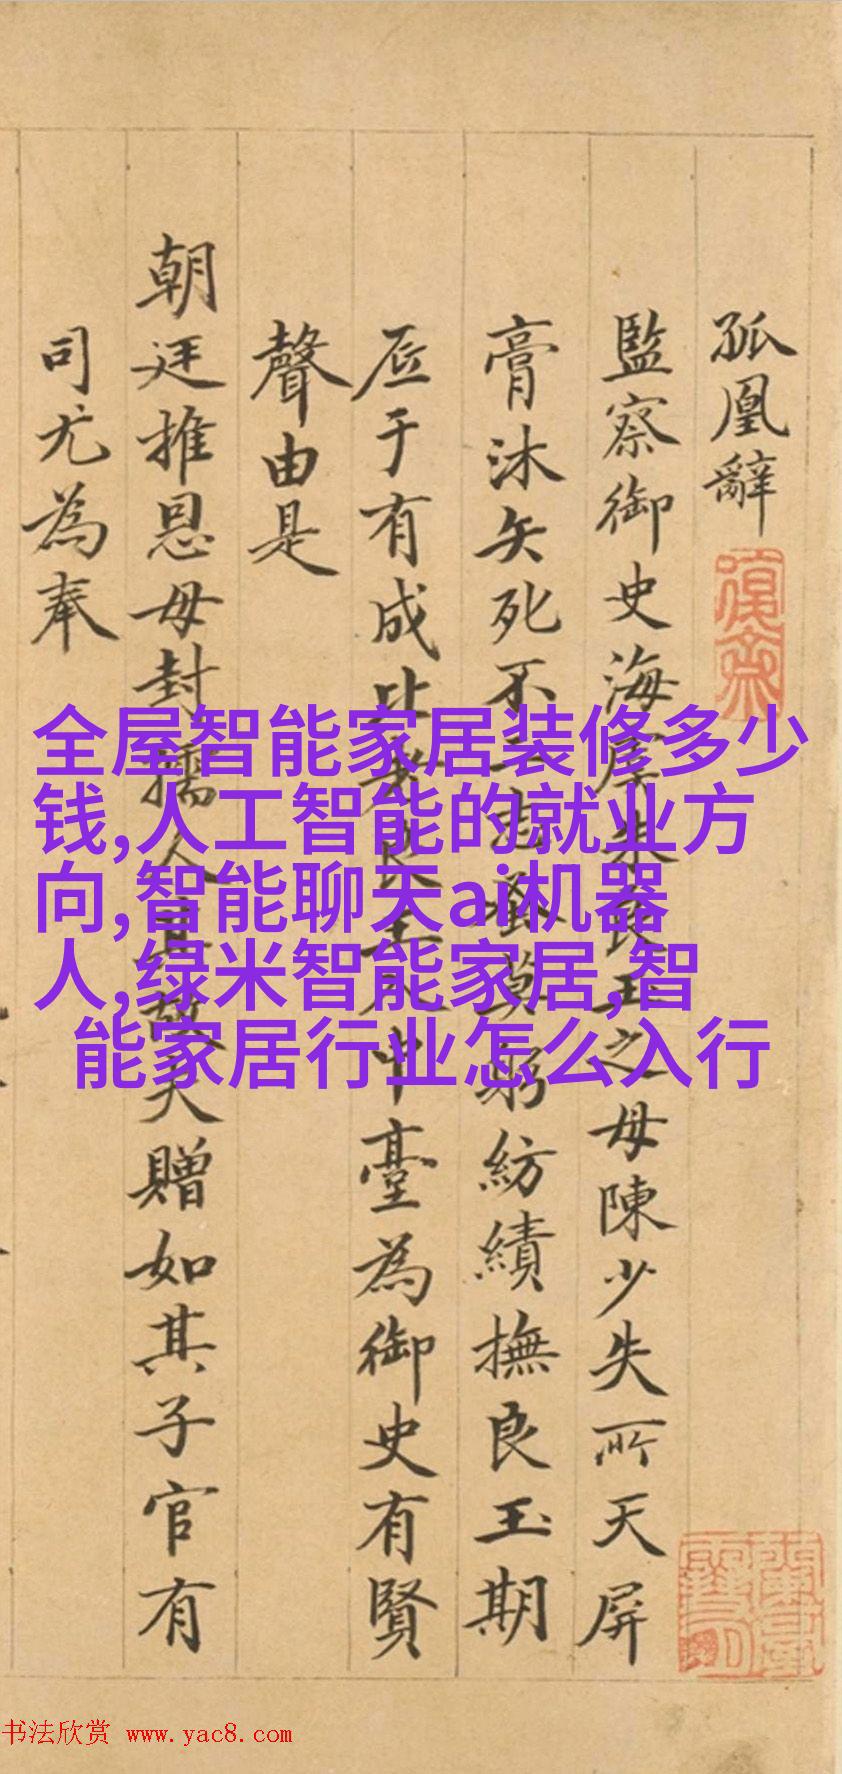 孤凰辭
監察御史海虞朱良玉之母陳少失所天屏
膏沐矢死不二志蚤莫躬紡績撫良玉期
底于有成比良玉入中臺為御史有賢
聲由是
朝廷推恩母封孺人且故夫贈如其子官有
司尤為奉
全屋智能家居装修多少
钱,人工智能的就业方
向,智能聊天ai机器
人,绿米智能家居,智
能家居行业怎么入行
书法欣赏 www.yac8.com